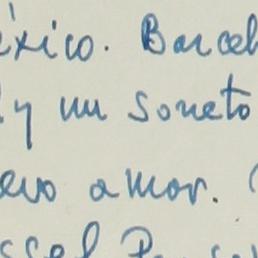 éxico. Barcel
y un soneto
evo amor. (
ssel P